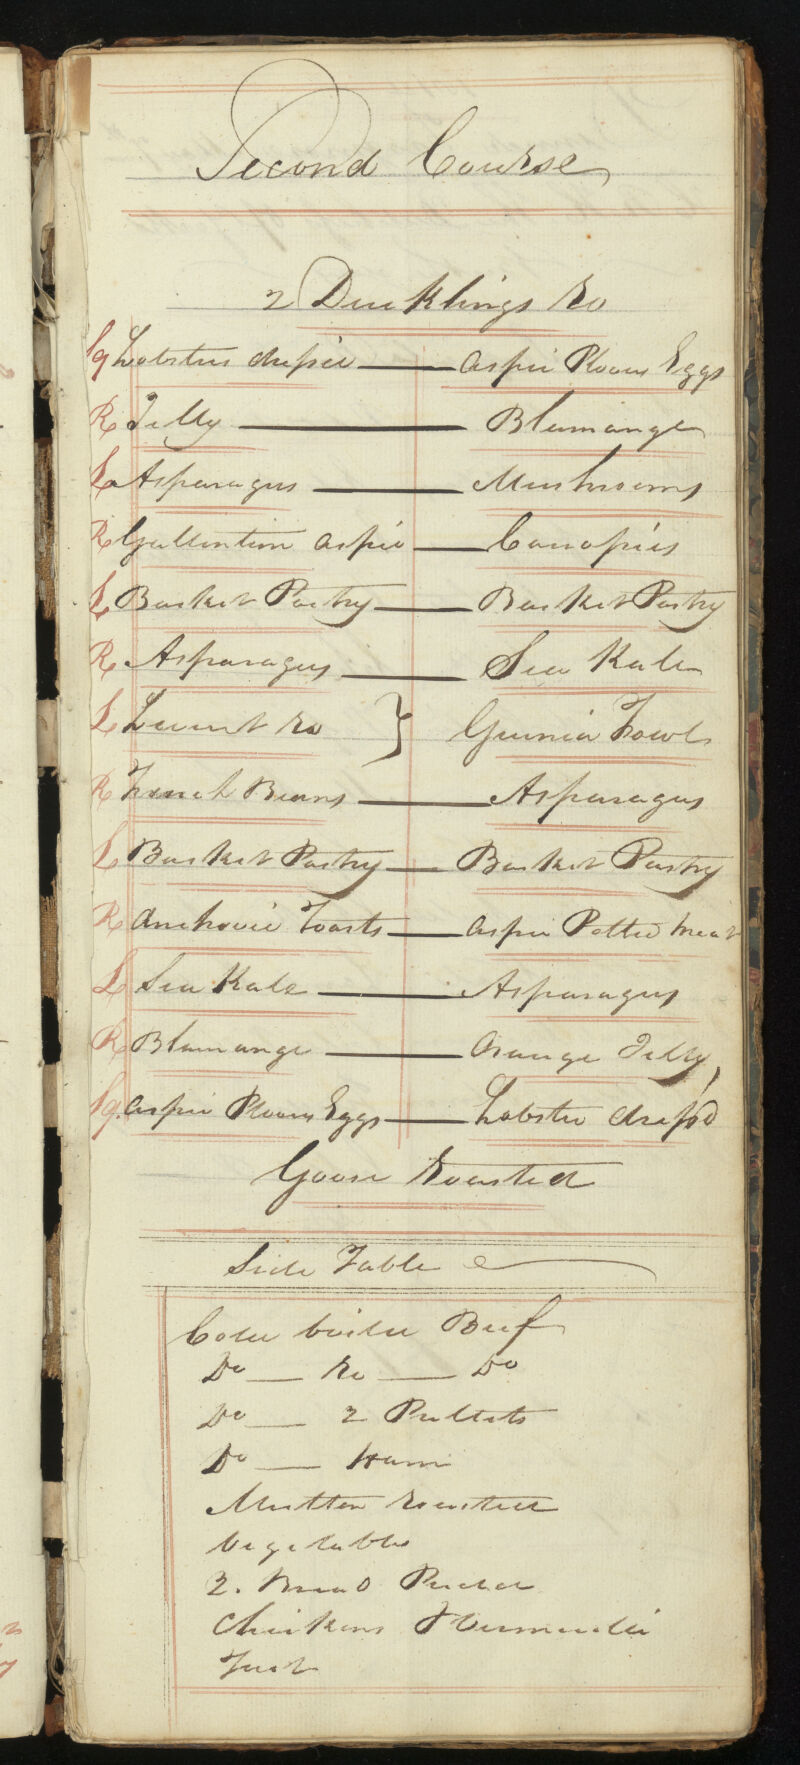 Second Course
2 Ducklings Ro
Sq Lobsters dressed — Aspic Plovers Eggs
R Jelly — Blumange
L Asparagus — Mushrooms
R Gallintine aspic — Canopies
L Basket Pastry — Basket Pastry
R Asparagus — Sea Kale
L Leveret Ro } Guinia Fowl
R French Beans — Asparagus
L Basket Pastry — Basket Pastry
R Anchovie Toasts — Aspic Potted Meat
L Sea Kale — Asparagus
R Blamange — Orange Jelly
Sq. Aspic Plovers Eggs — Lobster dress'd
Goose Roasted
Side Table
Cold boiled Beef
Do — Ro — Do
Do — 2 Pullets
Do — Ham
Mutton Roasted
Vegetables
2. Bread
Chickens